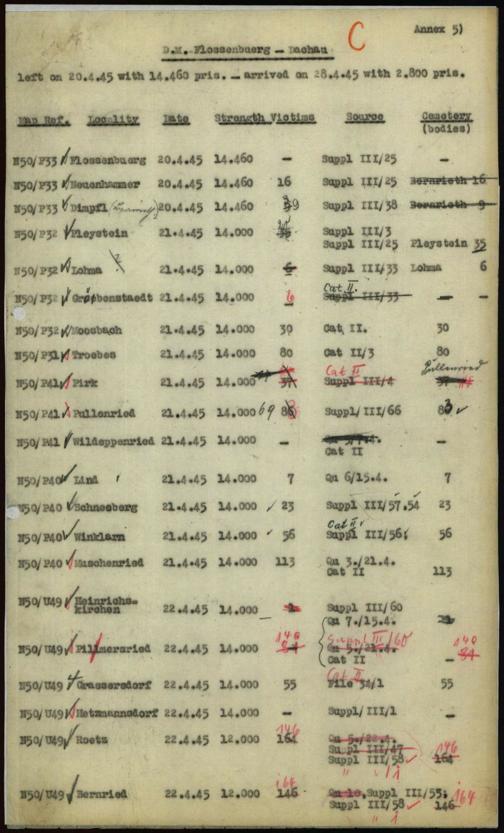 Annex 5)
C
D.M. Flossenbuerg — Dachau
left on 20.4.45 with 14.460 pris. — arrived on 28.4.45 with 2.800 pris.
Map Ref. Locality Date Strength Victims Source Cemetery
(bodies)
N50/P33 Flossenbuerg 20.4.45 14.460 — Suppl III/25 —
N50/P33 Neuenhammer 20.4.45 14.460 16 Suppl III/25 Bernrieth 16
N50/P33 Dimpfl 20.4.45 14.460 9 Suppl III/38 Bernrieth 9
N50/P32 Pleystein 21.4.45 14.000 Suppl III/3
Suppl III/25 Pleystein 35
N50/P32 Lohma ? 21.4.45 14.000 6 Suppl III/33 Lohma 6
Cat II.
N50/P32 Gröbenstaedt 21.4.45 14.000 6 Suppl III/33 — —
N50/P32 Moosbach 21.4.45 14.000 30 Cat II. 30
N50/P31 Troebes 21.4.45 14.000 80 Cat II/3 80
Cat II Pullenried
N50/P41 Pirk 21.4.45 14.000 37 Suppl III/4 37
N50/P41 Pullenried 21.4.45 14.000 69 Suppl/III/66 83
N50/P41 Wildeppenried 21.4.45 14.000 — —
Cat II
N50/P40 Lind 21.4.45 14.000 7 Qu 6/15.4. 7
N50/P40 Schneeberg 21.4.45 14.000 23 Suppl III/57.54 23
Cat II.
N50/P40 Winklarn 21.4.45 14.000 56 Suppl III/56; 56
N50/P40 Muschenried 21.4.45 14.000 113 Qu 3./21.4.
Cat II 113
N50/U49 Heinrichs-
kirchen 22.4.45 14.000 Suppl III/60
Qu 7./15.4.
140 Suppl III/60 140
N50/U49 Pillmersried 22.4.45 14.000 84 Qu 5./21.4. 84
Cat II
Cat II
N50/U49 Grassersdorf 22.4.45 14.000 55 File 34/1 55
N50/U49 Hetzmannsdorf 22.4.45 14.000 — Suppl/III/1 —
146
N50/U49 Roetz 22.4.45 12.000 164 Qu 5./22.4. 146
Suppl III/47
Suppl III/58 164
164
N50/U49 Bernried 22.4.45 12.000 146 Qu 10. Suppl III/55; 164
Suppl III/58 146